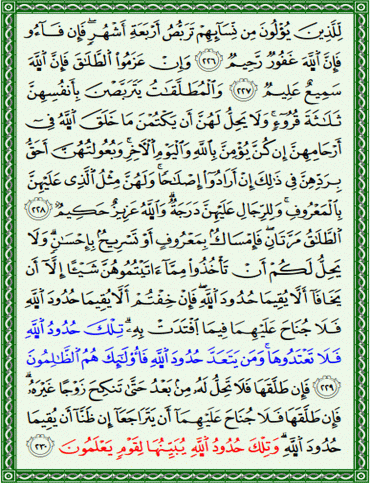 لِّلَّذِينَ يُؤْلُونَ مِن نِّسَآئِهِمْ تَرَبُّصُ أَرْبَعَةِ أَشْهُرٍ ۖ فَإِن فَآءُو
فَإِنَّ ٱللَّهَ غَفُورٌ رَّحِيمٌ ﴿٢٢٦﴾ وَإِنْ عَزَمُوا۟ ٱلطَّلَٰقَ فَإِنَّ ٱللَّهَ
سَمِيعٌ عَلِيمٌ ﴿٢٢٧﴾ وَٱلْمُطَلَّقَٰتُ يَتَرَبَّصْنَ بِأَنفُسِهِنَّ
ثَلَٰثَةَ قُرُوٓءٍ ۚ وَلَا يَحِلُّ لَهُنَّ أَن يَكْتُمْنَ مَا خَلَقَ ٱللَّهُ فِىٓ
أَرْحَامِهِنَّ إِن كُنَّ يُؤْمِنَّ بِٱللَّهِ وَٱلْيَوْمِ ٱلْءَاخِرِ ۚ وَبُعُولَتُهُنَّ أَحَقُّ
بِرَدِّهِنَّ فِى ذَٰلِكَ إِنْ أَرَادُوٓا۟ إِصْلَٰحًا ۚ وَلَهُنَّ مِثْلُ ٱلَّذِى عَلَيْهِنَّ
بِٱلْمَعْرُوفِ ۚ وَلِلرِّجَالِ عَلَيْهِنَّ دَرَجَةٌ ۗ وَٱللَّهُ عَزِيزٌ حَكِيمٌ ﴿٢٢٨﴾
ٱلطَّلَٰقُ مَرَّتَانِ ۖ فَإِمْسَاكٌۢ بِمَعْرُوفٍ أَوْ تَسْرِيحٌۢ بِإِحْسَٰنٍ ۗ وَلَا
يَحِلُّ لَكُمْ أَن تَأْخُذُوا۟ مِمَّآ ءَاتَيْتُمُوهُنَّ شَيْـًٔا إِلَّآ أَن
يَخَافَآ أَلَّا يُقِيمَا حُدُودَ ٱللَّهِ ۖ فَإِنْ خِفْتُمْ أَلَّا يُقِيمَا حُدُودَ ٱللَّهِ
فَلَا جُنَاحَ عَلَيْهِمَا فِيمَا ٱفْتَدَتْ بِهِۦ ۗ تِلْكَ حُدُودُ ٱللَّهِ
فَلَا تَعْتَدُوهَا ۚ وَمَن يَتَعَدَّ حُدُودَ ٱللَّهِ فَأُو۟لَٰٓئِكَ هُمُ ٱلظَّٰلِمُونَ
﴿٢٢٩﴾ فَإِن طَلَّقَهَا فَلَا تَحِلُّ لَهُۥ مِنۢ بَعْدُ حَتَّىٰ تَنكِحَ زَوْجًا غَيْرَهُۥ ۗ
فَإِن طَلَّقَهَا فَلَا جُنَاحَ عَلَيْهِمَآ أَن يَتَرَاجَعَآ إِن ظَنَّآ أَن يُقِيمَا
حُدُودَ ٱللَّهِ ۗ وَتِلْكَ حُدُودُ ٱللَّهِ يُبَيِّنُهَا لِقَوْمٍ يَعْلَمُونَ ﴿٢٣٠﴾